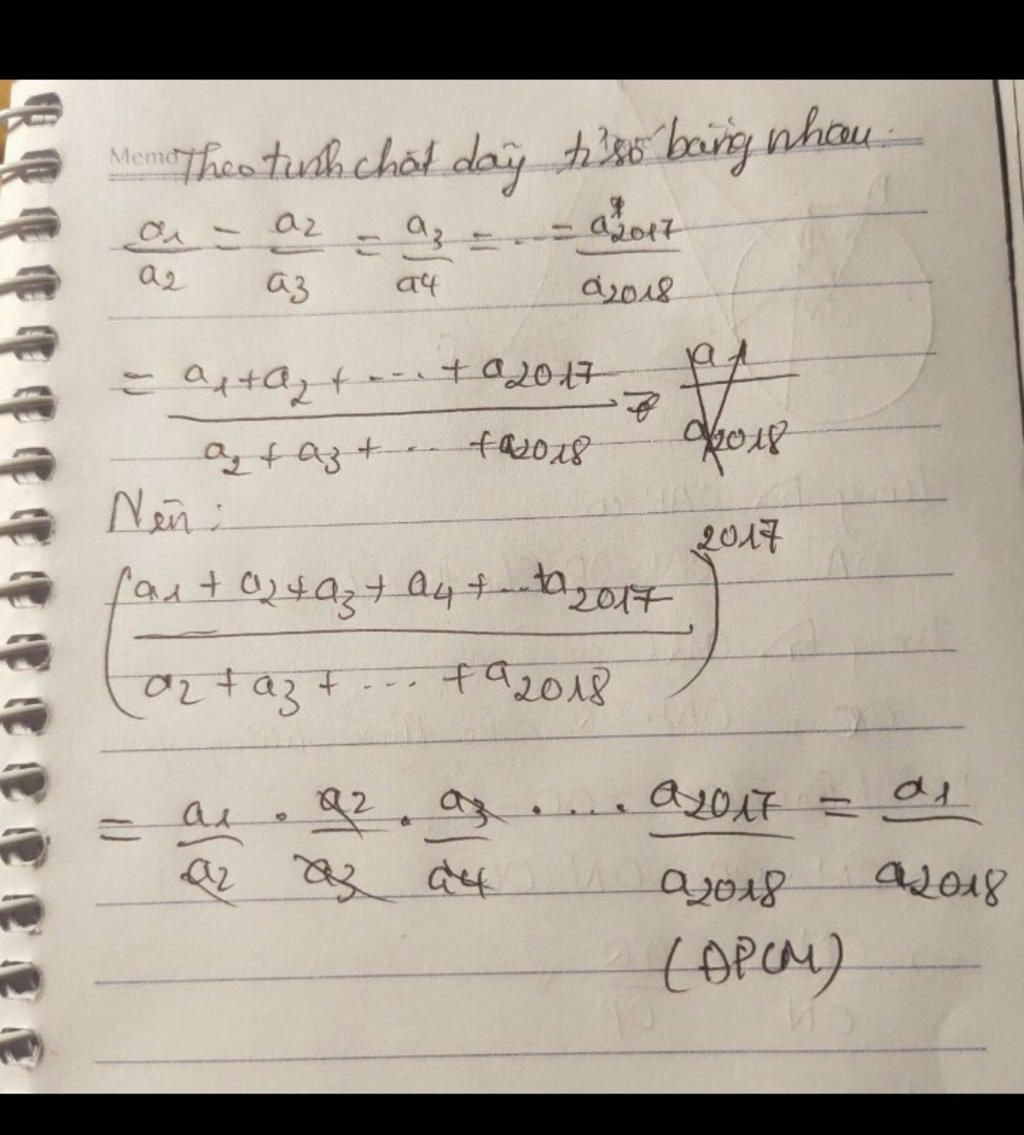 Memo Theo tính chất dãy tỉ số bằng nhau:
a1/a2 = a2/a3 = a3/a4 = ... = a2017/a2018
= (a1 + a2 + ... + a2017)/(a2 + a3 + ... + a2018)
a1/a2018
Nên:
((a1 + a2 + a3 + a4 + ... + a2017)/(a2 + a3 + ... + a2018))^2017
= a1/a2 . a2/a3 . a3/a4 . ... . a2017/a2018 = a1/a2018
(ĐPCM)